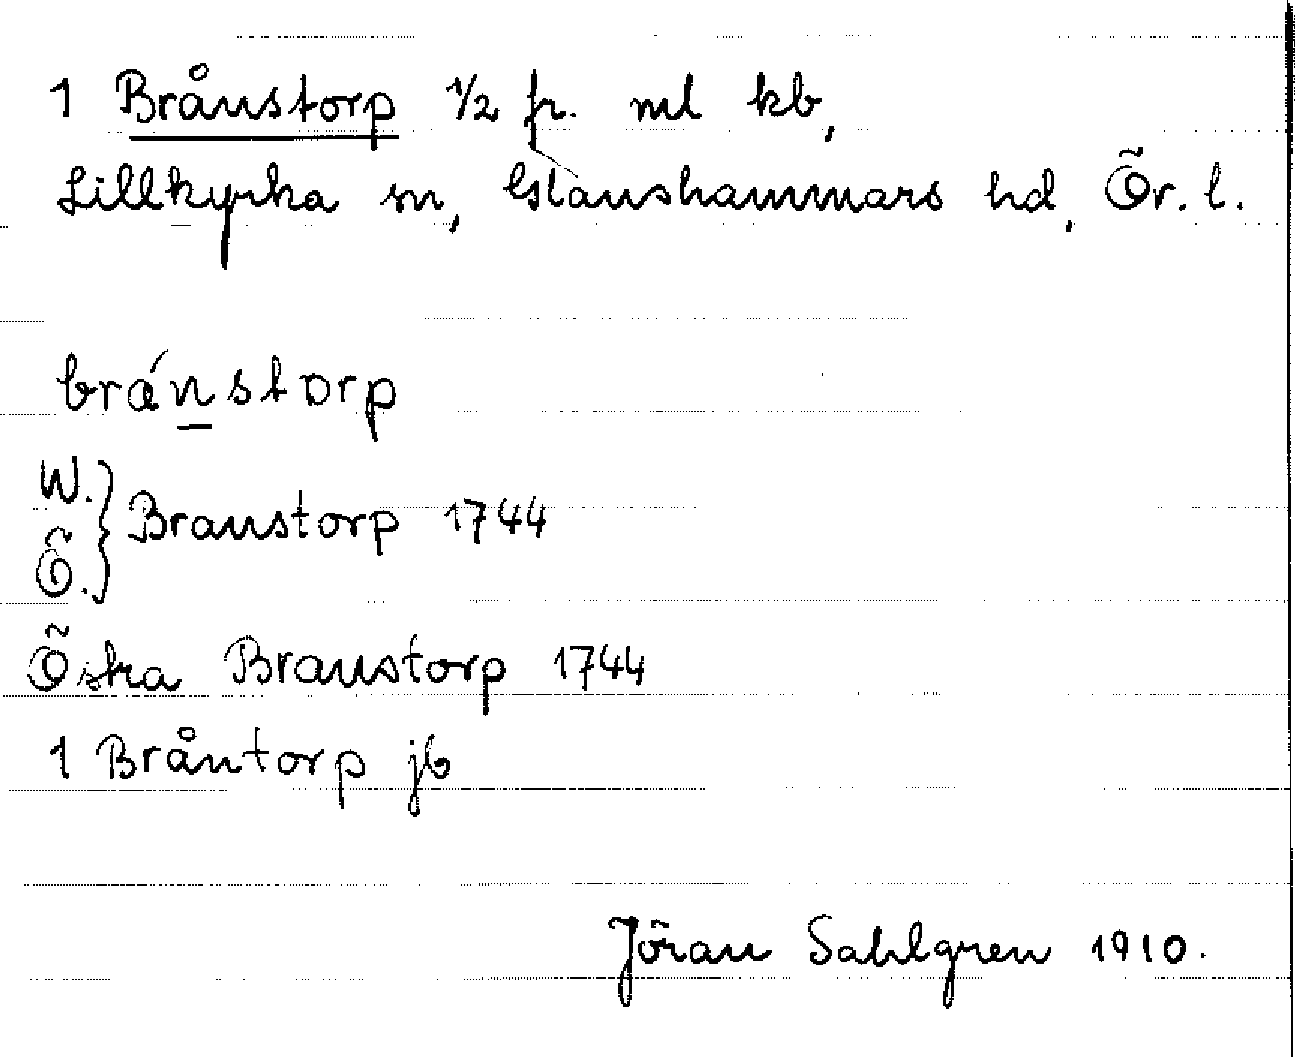 1 Brånstorp 1/2 fr. ml kb,
Lillkyrka sn, Glanshammars hd, Ör. l.
brá̱nstorp
W. } Branstorp 1744
Ö. }
Östra Branstorp 1744
1 Bråntorp jb
Jöran Sahlgren 1910.